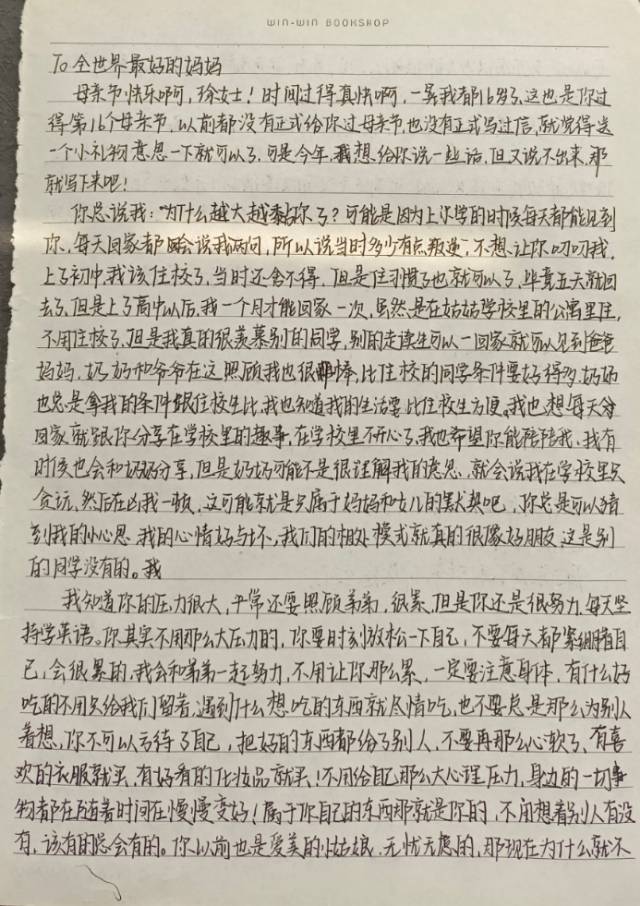 WIN-WIN BOOKSHOP
To 全世界最好的妈妈
母亲节快乐啊,徐女士!时间过得真快啊,一晃我都16岁了,这也是你过
得第16个母亲节,以前都没有正式给你过母亲节,也没有正式写过信,就觉得送
一个小礼物意思一下就可以了,可是今年,我想给你说一些话,但又说不出来,那
就写下来吧!
你总说我:"为什么越大越黏你了?可能是因为上小学的时候每天都能见到
你,每天回家都会说我两句,所以说当时多少有点叛逆,不想让你叨叨我,
上了初中,我该住校了,当时还舍不得,但是住习惯了也就可以了,毕竟五天就回
去了,但是上了高中以后,我一个月才能回家一次,虽然是在姑姑学校里的公寓里住,
不用住校了,但是我真的很羡慕别的同学,别的走读生可以一回家就可以见到爸爸
妈妈,奶奶和爷爷在这照顾我也很棒,比住校的同学条件要好得多,奶奶
也总是拿我的条件跟住校生比,我也知道我的生活要比住校生方便,我也想每天
回家就跟你分享在学校里的趣事,在学校里不开心了,我也希望你能陪陪我,我有
时候也会和奶奶分享,但是奶奶可能不是很理解我的意思,就会说我在学校里只
贪玩,然后在凶我一顿,这可能就是只属于妈妈和女儿的默契吧,你总是可以猜
到我的小心思,我的心情好与坏,我们的相处模式就真的很像好朋友,这是别
的同学没有的。我
我知道你的压力很大,平常还要照顾弟弟,很累,但是你还是很努力,每天坚
持学英语。你其实不用那么大压力的,你要时刻放松一下自己,不要每天都紧绷着自
己,会很累的,我会和弟弟一起努力,不用让你那么累,一定要注意身体,有什么好
吃的不用久给我们留着,遇到什么想吃的东西就尽情吃,也不要总是那么为别人
着想,你不可以亏待了自己,把好的东西都给了别人,不要再那么心软了,有喜
欢的衣服就买,有好看的化妆品就买!不用给自己那么大心理压力,身边的一切事
物都在随着时间在慢慢变好!属于你自己的东西那就是你的,不用想着别人有没
有,该有的总会有的。你以前也是爱美的小姑娘,无忧无虑的,那现在为什么就不